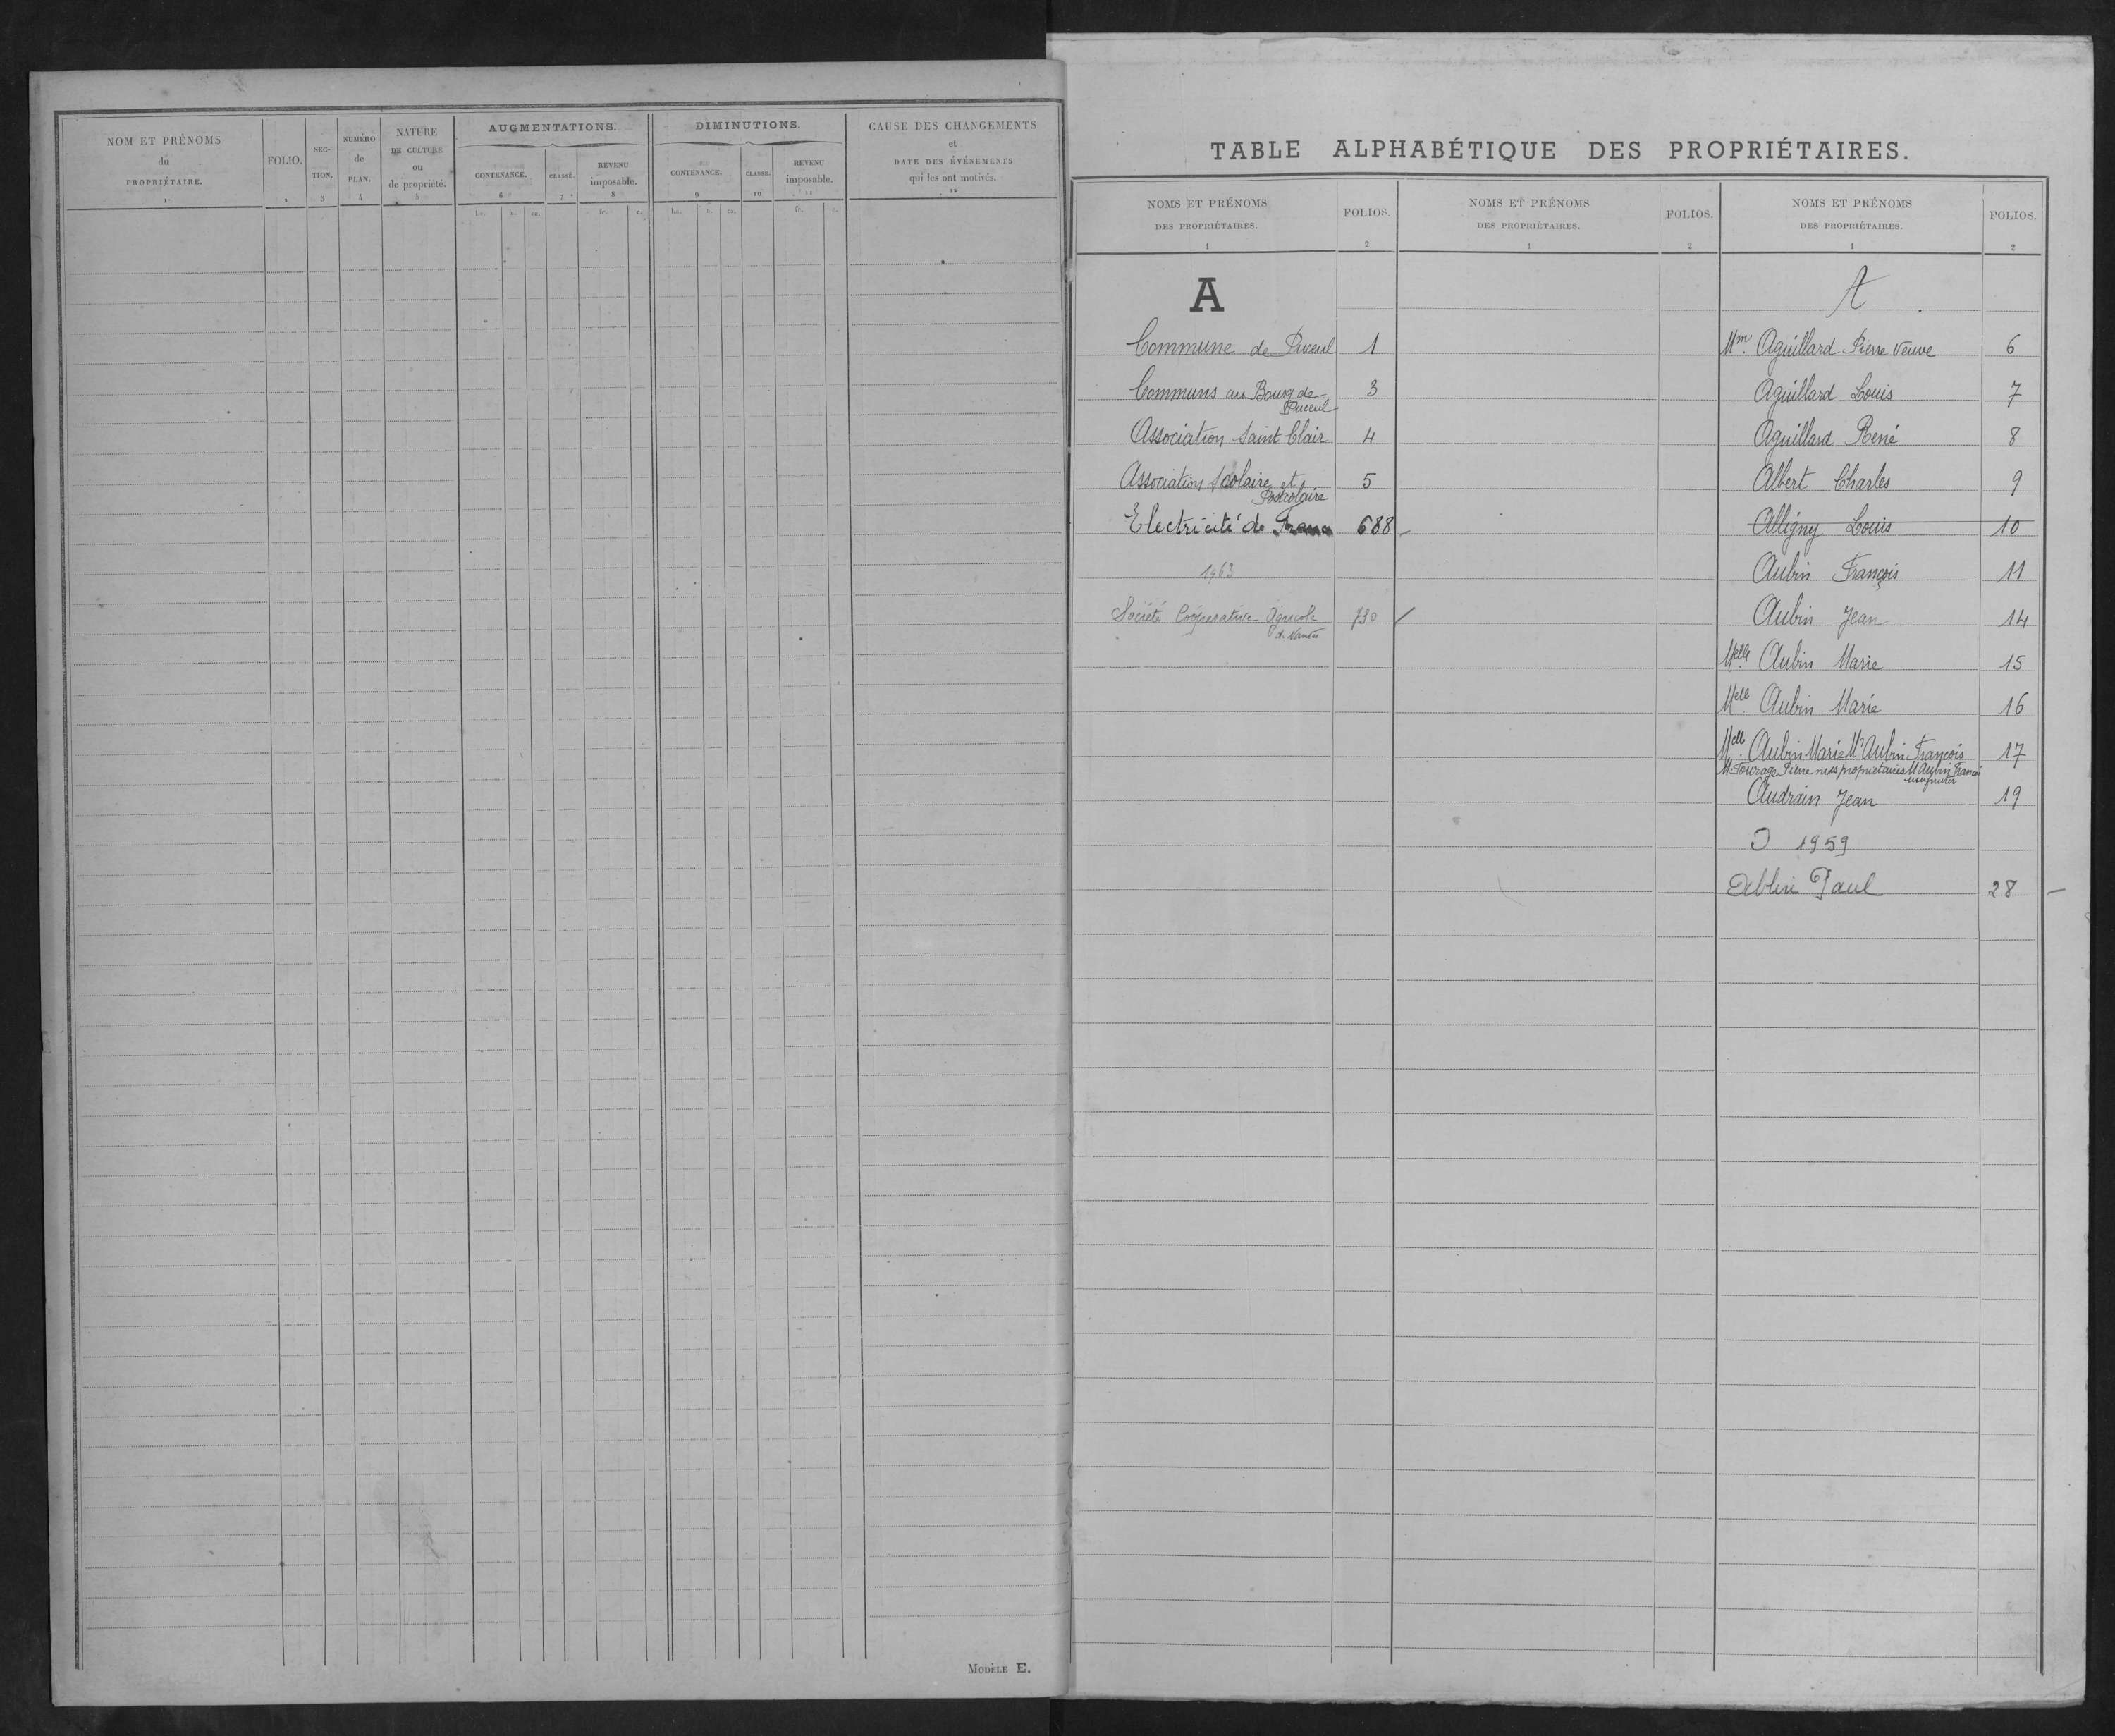 NOM ET PRÉNOMS
du
PROPRIÉTAIRE.
1
FOLIO.
2
SEC-
TION.
3
NUMÉRO
de
PLAN.
4
NATURE
DE CULTURE
ou
de propriété.
5
AUGMENTATIONS.
CONTENANCE.
6
CLASSE.
7
REVENU
imposable.
8
DIMINUTIONS.
CONTENANCE.
9
CLASSE.
10
REVENU
imposable.
11
CAUSE DES CHANGEMENTS
et
DATE DES ÉVÉNEMENTS
qui les ont motivés.
12
ha. a. ca. fr. c. ha. a. ca. fr. c.
MODÈLE E.
TABLE ALPHABÉTIQUE DES PROPRIÉTAIRES.
NOMS ET PRÉNOMS
DES PROPRIÉTAIRES.
1
FOLIOS.
2
NOMS ET PRÉNOMS
DES PROPRIÉTAIRES.
1
FOLIOS.
2
NOMS ET PRÉNOMS
DES PROPRIÉTAIRES.
1
FOLIOS.
2
A
Commune de Puceul 1
Communs au Bourg de 3
Puceul
Association Saint Clair 4
Association Scolaire et 5
Postcolaire
Electricité de France 688
1963
Société Coopérative Agricole 730
de Nantes
A
Mme Aguillard Pierre Veuve 6
Aguillard Louis 7
Aguillard René 8
Albert Charles 9
Alligny Louis 10
Aubin François 11
Aubin Jean 14
Melle Aubin Marie 15
Melle Aubin Marie 16
Melle Aubin Marie Mr Aubin François 17
M. Fourage Pierre nus propriétaires M Aubin François
usufruitier
Audrain Jean 19
D 1959
Paul 28